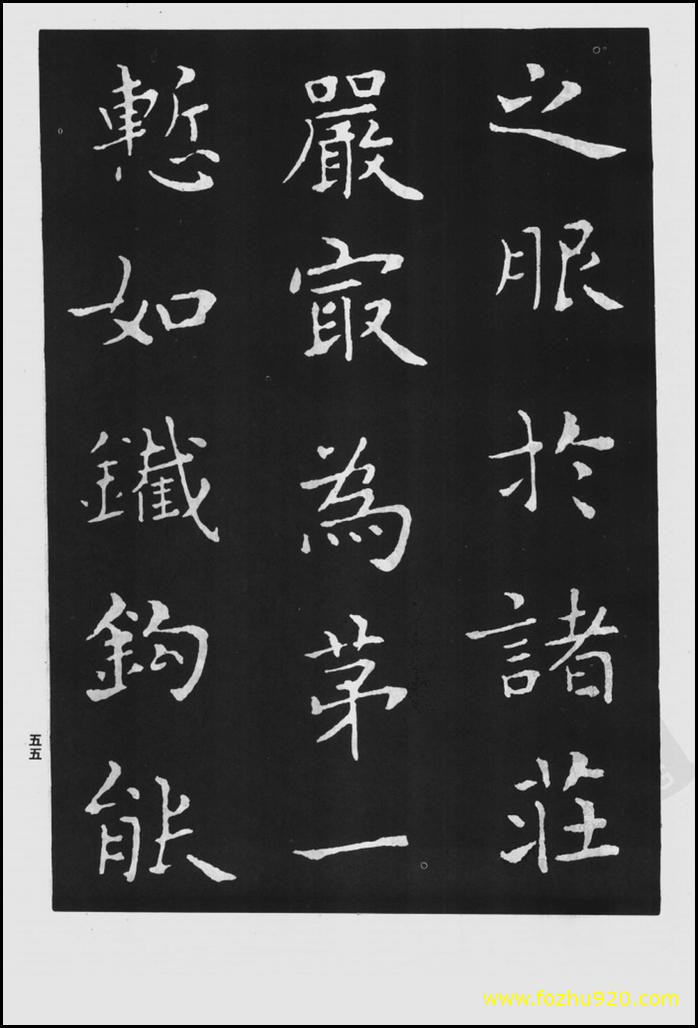 之服於諸莊
嚴㝡為苐一
慙如鐵鉤能
五五
www.fozhu920.com